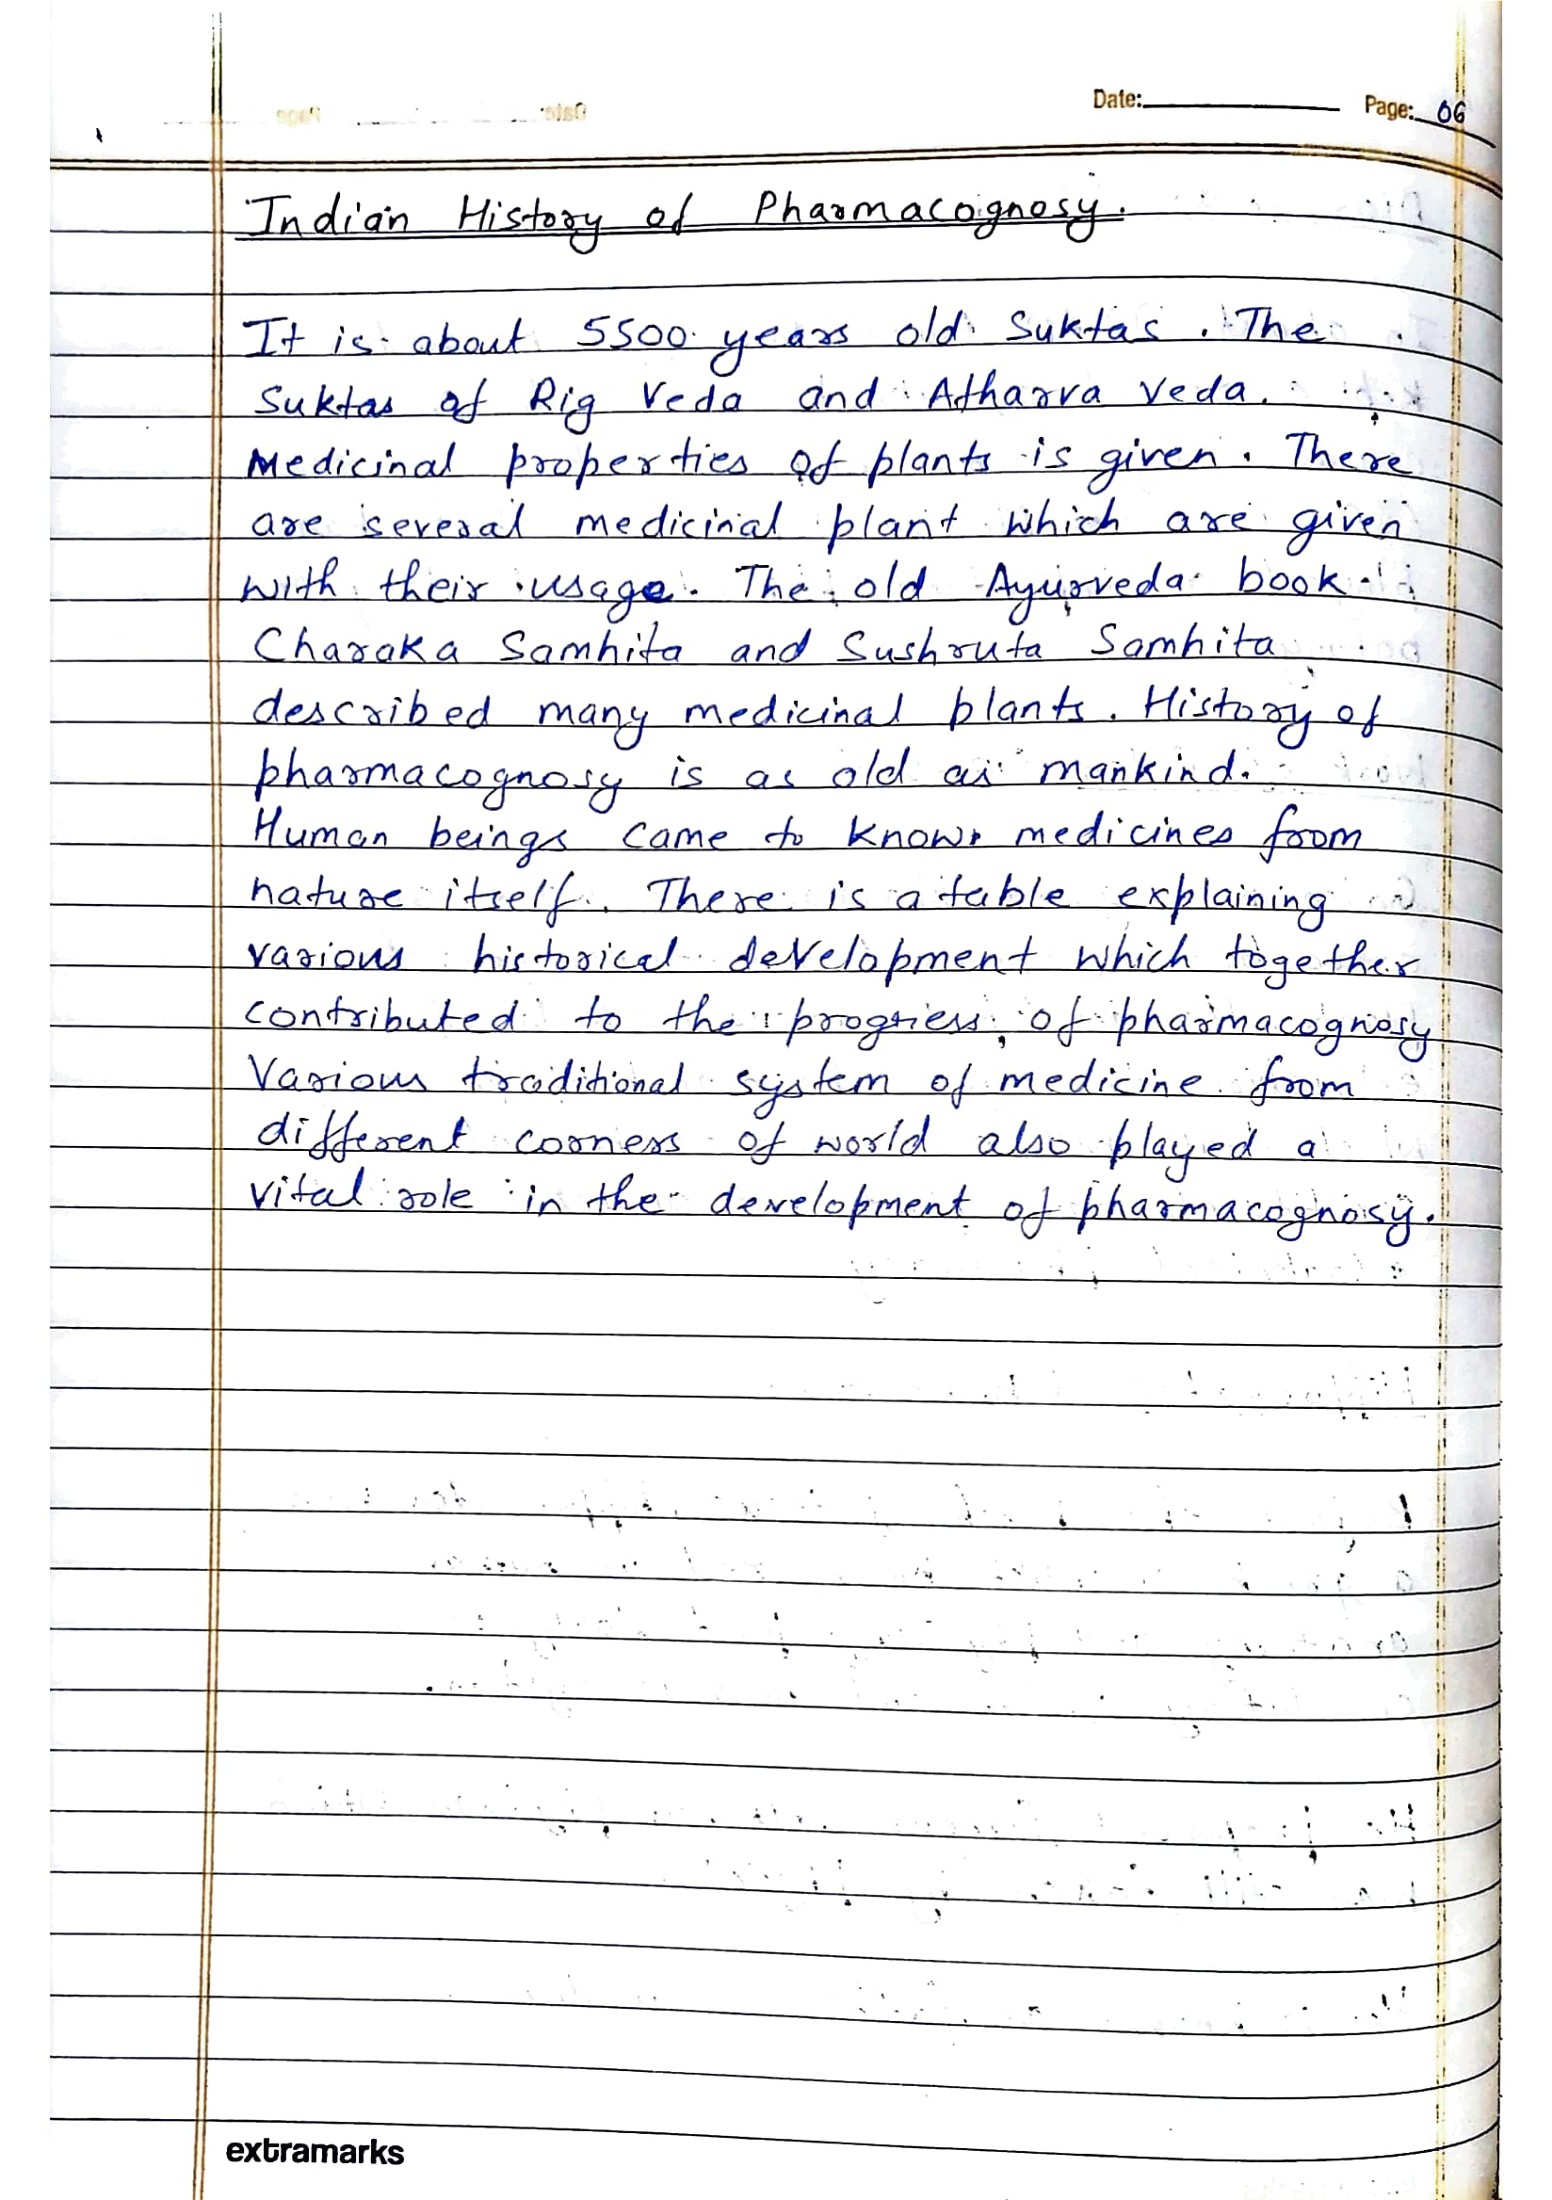 Date: Page: 06
Indian History of Pharmacognosy.
It is about 5500 years old Suktas. The
Suktas of Rig Veda and Atharva Veda.
Medicinal properties of plants is given. There
are several medicinal plant which are given
with their usage. The old Ayurveda book
Charaka Samhita and Sushruta Samhita
described many medicinal plants. History of
pharmacognosy is as old as mankind.
Human beings came to know medicines from
nature itself. There is a table explaining
various historical development which together
contributed to the progress of pharmacognosy
Various traditional system of medicine from
different corners of world also played a
vital role in the development of pharmacognosy.
extramarks